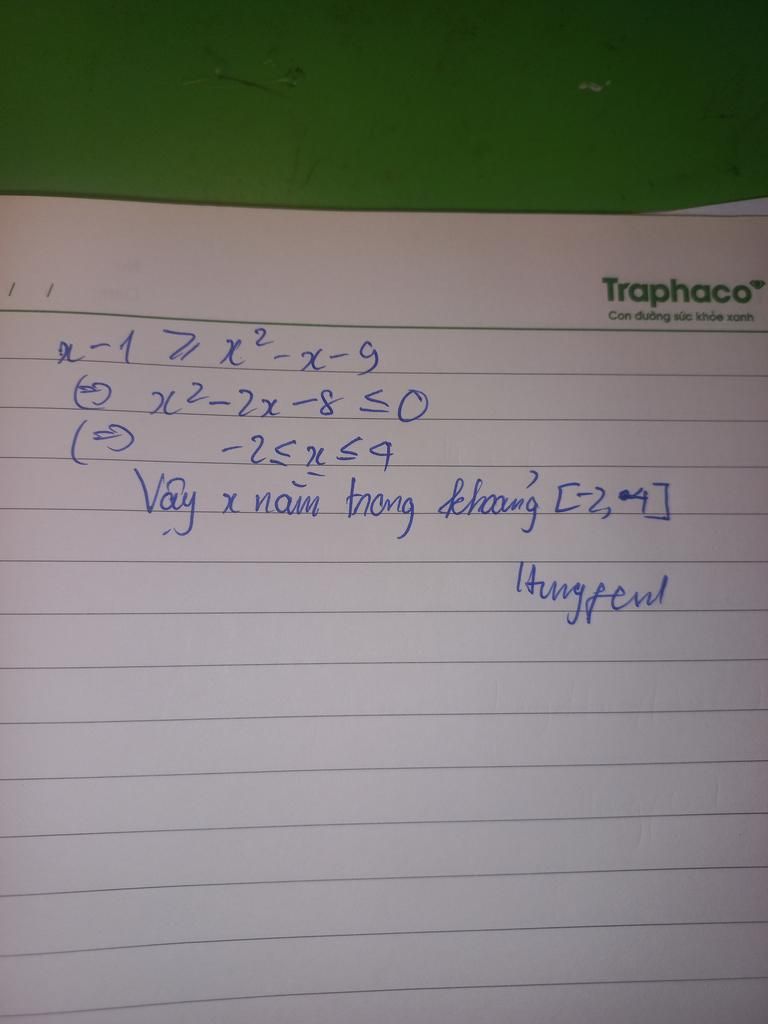 / /
Traphaco
Con đường sức khỏe xanh
x - 1 ≥ x² - x - 9
⇔ x² - 2x - 8 ≤ 0
⇔ -2 ≤ x ≤ 4
Vậy x nằm trong khoảng [-2, 4]